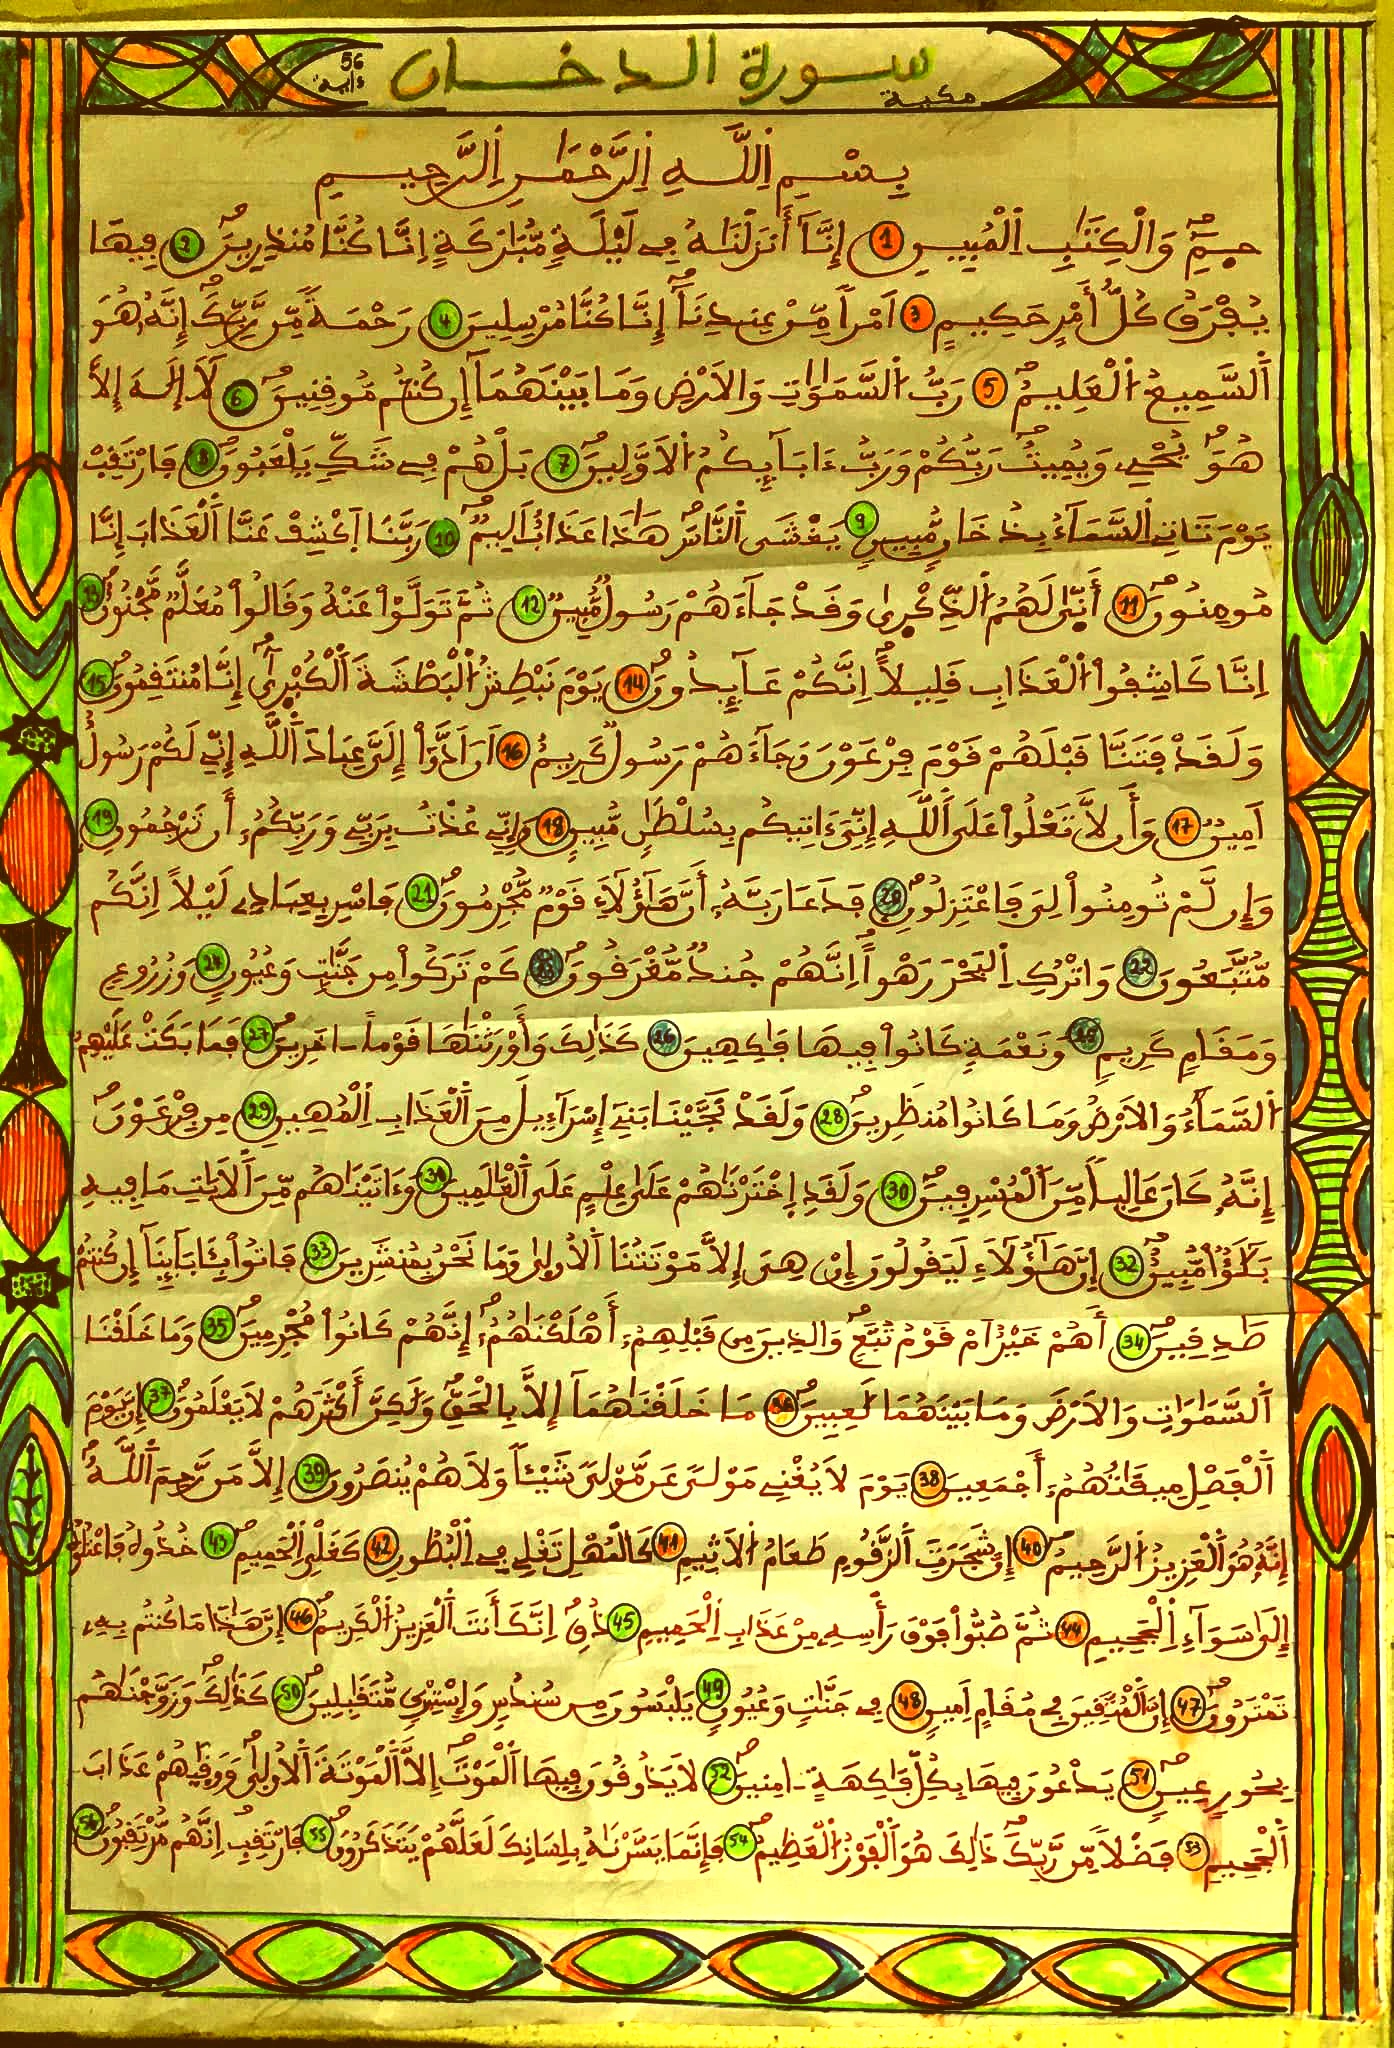 سورة الدخان
مكية
56
ءاية
بِسْمِ اِللَّهِ اِلرَّحْمَٰنِ اِلرَّحِيمِ
حمِٓ وَالْكِتَٰبِ اِلْمُبِينِ 1 إِنَّآ أَنزَلْنَاهُ فِے لَيْلَةٖ مُّبَارَكَةٍ اِنَّا كُنَّا مُنذِرِينَ 2 فِيهَا
يُفْرَقُ كُلُّ أَمْرٍ حَكِيمٍ 3 اَمْراٗ مِّنْ عِندِنَآ إِنَّا كُنَّا مُرْسِلِينَ 4 رَحْمَةٗ مِّن رَّبِّكَ إِنَّهُۥ هُوَ
اَلسَّمِيعُ اُلْعَلِيمُ 5 رَبُّ اُلسَّمَٰوَٰتِ وَالاَرْضِ وَمَا بَيْنَهُمَآ إِن كُنتُم مُّوقِنِينَ 6 لَآ إِلَٰهَ إِلاَّ
هُوَ يُحْيِۦ وَيُمِيتُ رَبُّكُمْ وَرَبُّ ءَابَآئِكُمُ اُلاَوَّلِينَ 7 بَلْ هُمْ فِے شَكّٖ يَلْعَبُونَ 8 فَارْتَقِبْ
يَوْمَ تَاتِے اِلسَّمَآءُ بِدُخَانٖ مُّبِينٖ 9 يَغْشَى اَلنَّاسَ هَٰذَا عَذَابٌ اَلِيمٌ 10 رَبَّنَا اَكْشِفْ عَنَّا اَلْعَذَابَ إِنَّا
مُومِنُونَ 11 أَنّ۪يٰ لَهُمُ اُلذِّكْر۪يٰ وَقَدْ جَآءَهُمْ رَسُولٞ مُّبِينٞ 12 ثُمَّ تَوَلَّوْاْ عَنْهُ وَقَالُواْ مُعَلَّمٞ مَّجْنُونٌ 13
اِنَّا كَاشِفُواْ اُلْعَذَابِ قَلِيلاً اِنَّكُمْ عَآئِدُونَ 14 يَوْمَ نَبْطِشُ اُلْبَطْشَةَ اَلْكُبْر۪يٰٓ إِنَّا مُنتَقِمُونَ 15
وَلَقَدْ فَتَنَّا قَبْلَهُمْ قَوْمَ فِرْعَوْنَ وَجَآءَهُمْ رَسُولٞ كَرِيمٌ 16 اَنَ اَدُّوٓاْ إِلَيَّ عِبَادَ اَللَّهِ إِنِّے لَكُمْ رَسُولٌ
اَمِينٞ 17 وَأَن لاَّ تَعْلُواْ عَلَى اَللَّهِ إِنِّيَ ءَاتِيكُم بِسُلْطَٰنٖ مُّبِينٖ 18 وَإِنِّے عُذْتُ بِرَبِّے وَرَبِّكُمُۥٓ أَن تَرْجُمُونِ 19
وَإِن لَّمْ تُومِنُواْ لِيَ فَاعْتَزِلُونِ 20 فَدَعَا رَبَّهُۥٓ أَنَّ هَٰٓؤُلَآءِ قَوْمٞ مُّجْرِمُونَ 21 فَاسْرِ بِعِبَادِے لَيْلاً اِنَّكُم
مُّتَّبَعُونَ 22 وَاتْرُكِ اِلْبَحْرَ رَهْواً اِنَّهُمْ جُندٞ مُّغْرَقُونَ 23 كَمْ تَرَكُواْ مِن جَنَّٰتٖ وَعُيُونٖ 24 وَزُرُوعٖ
وَمَقَامٖ كَرِيمٖ 25 وَنَعْمَةٖ كَانُواْ فِيهَا فَٰكِهِينَ 26 كَذَٰلِكَ وَأَوْرَثْنَٰهَا قَوْماً ـ اخَرِينَ 27 فَمَا بَكَتْ عَلَيْهِمُ
اُلسَّمَآءُ وَالاَرْضُ وَمَا كَانُواْ مُنظَرِينَ 28 وَلَقَدْ نَجَّيْنَا بَنِےٓ إِسْرَآءِيلَ مِنَ اَلْعَذَابِ اِلْمُهِينِ 29 مِن فِرْعَوْنَ
إِنَّهُۥ كَانَ عَالِياٗ مِّنَ اَلْمُسْرِفِينَ 30 وَلَقَدِ اِخْتَرْنَٰهُمْ عَلَىٰ عِلْمٍ عَلَى اَلْعَٰلَمِينَ وَءَاتَيْنَٰهُم مِّنَ اَلاَيَٰتِ مَا فِيهِ
بَلَٰٓؤٌاْ مُّبِينٌ 32 إِنَّ هَٰٓؤُلَآءِ لَيَقُولُونَ إِنْ هِيَ إِلاَّ مَوْتَتُنَا اَلاُول۪يٰ وَمَا نَحْنُ بِمُنشَرِينَ 33 فَاتُواْ بِـَٔابَآئِنَآ إِن كُنتُمْ
صَٰدِقِينَ 34 أَهُمْ خَيْرٌ اَمْ قَوْمُ تُبَّعٖ وَالذِينَ مِن قَبْلِهِمُۥٓ أَهْلَكْنَٰهُمُۥٓ إِنَّهُمْ كَانُواْ مُجْرِمِينَ 35 وَمَا خَلَقْنَا
اَلسَّمَٰوَٰتِ وَالاَرْضَ وَمَا بَيْنَهُمَا لَٰعِبِينَ 36 مَا خَلَقْنَٰهُمَآ إِلاَّ بِالْحَقِّ وَلَٰكِنَّ أَكْثَرَهُمْ لاَ يَعْلَمُونَ 37 إِنَّ يَوْمَ
اَلْفَصْلِ مِيقَٰتُهُمُۥٓ أَجْمَعِينَ 38 يَوْمَ لاَ يُغْنِے مَوْلىً عَن مَّوْلىٗ شَيْـٔاٗ وَلاَ هُمْ يُنصَرُونَ 39 إِلاَّ مَن رَّحِمَ اَللَّهُ
إِنَّهُۥ هُوَ اَلْعَزِيزُ اُلرَّحِيمُ 40 إِنَّ شَجَرَتَ اَلزَّقُّومِ طَعَامُ اُلاَثِيمِ 41 كَالْمُهْلِ تَغْلِے فِے اِلْبُطُونِ 42 كَغَلْيِ اِلْحَمِيمِ 43 خُذُوهُ فَاعْتُلُوهُ
إِلَىٰ سَوَآءِ اِلْجَحِيمِ 44 ثُمَّ صُبُّواْ فَوْقَ رَأْسِهِۦ مِنْ عَذَابِ اِلْحَمِيمِ 45 ذُقِ اِنَّكَ أَنتَ اَلْعَزِيزُ اُلْكَرِيمُ 46 إِنَّ هَٰذَا مَا كُنتُم بِهِۦ
تَمْتَرُونَ 47 إِنَّ اَلْمُتَّقِينَ فِے مُقَامٍ اَمِينٖ 48 فِے جَنَّٰتٖ وَعُيُونٖ 49 يَلْبَسُونَ مِن سُندُسٖ وَإِسْتَبْرَقٖ مُّتَقَٰبِلِينَ 50 كَذَٰلِكَ وَزَوَّجْنَٰهُم
بِحُورٍ عِينٖ 51 يَدْعُونَ فِيهَا بِكُلِّ فَٰكِهَةٍ ـ امِنِينَ 52 لاَ يَذُوقُونَ فِيهَا اَلْمَوْتَ إِلاَّ اَلْمَوْتَةَ اَلاُول۪يٰ وَوَقَيٰهُمْ عَذَابَ
اَلْجَحِيمِ 53 فَضْلاٗ مِّن رَّبِّكَ ذَٰلِكَ هُوَ اَلْفَوْزُ اُلْعَظِيمُ 54 فَإِنَّمَا يَسَّرْنَٰهُ بِلِسَانِكَ لَعَلَّهُمْ يَتَذَكَّرُونَ 55 فَارْتَقِبِ اِنَّهُم مُّرْتَقِبُونَ 56